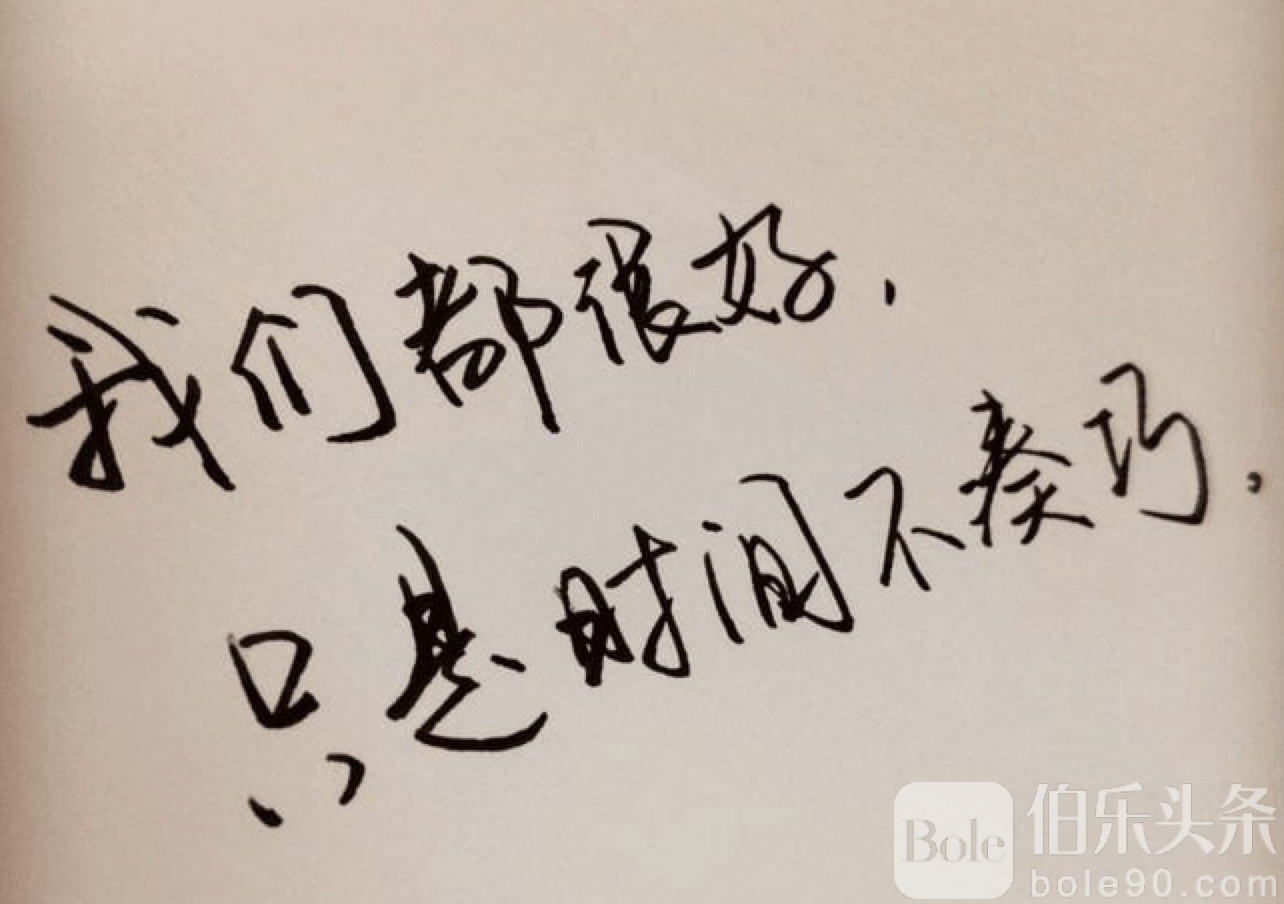 我们都很好.
只是时间不凑巧.
Bole
伯乐头条
bole90.com